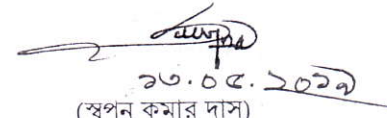 ১৩.০৫.২০১৯
(স্বপন কুমার দাস)